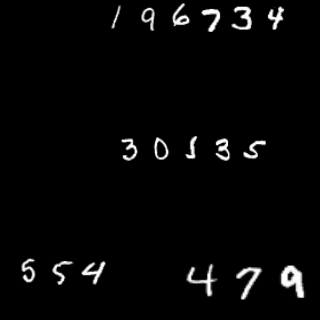 196734
30535
554 479